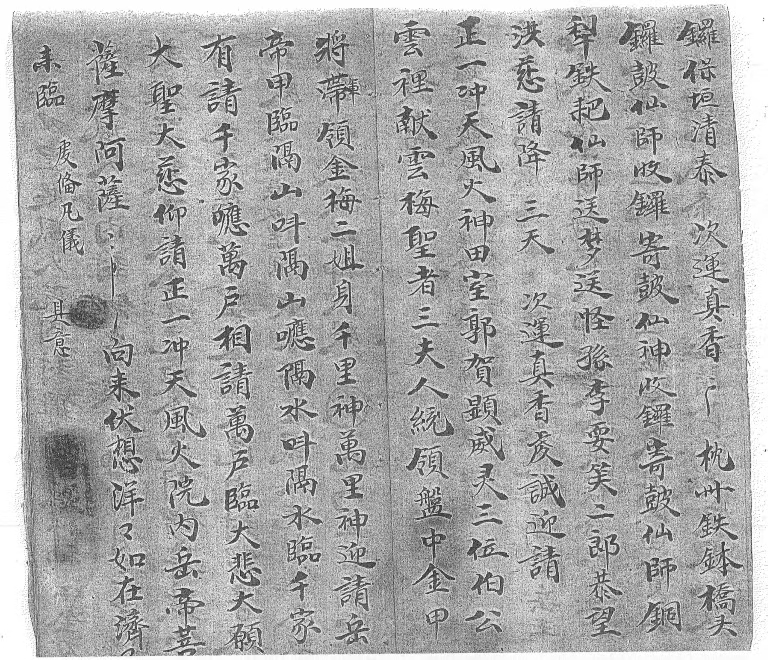 鑼保垣清泰 次運真香〻 枕丱鉄鉢橋头
鑼鼓仙師收鑼寄鼓仙神收鑼寄鼓仙師銅
犁鉄耙仙師送梦送怪孫李耍笑二郎恭望
洪慈請降 三天 次運真香虔誠迎請
正一冲天風火神田室郭賀顕威灵三位伯公
雲裡献雲梅聖者三夫人統領盤中金甲
将帶領金梅二姐身千里神萬里神迎請岳
帝甲臨隔山叫隔山應隔水叫隔水臨千家
有請千家應萬户相請萬户臨大悲大願
大聖大慈仰請正一冲天風火院内岳帝菩
薩摩阿薩〻 向来伏想洋々如在濟々
未臨 虔俻凡儀 具意